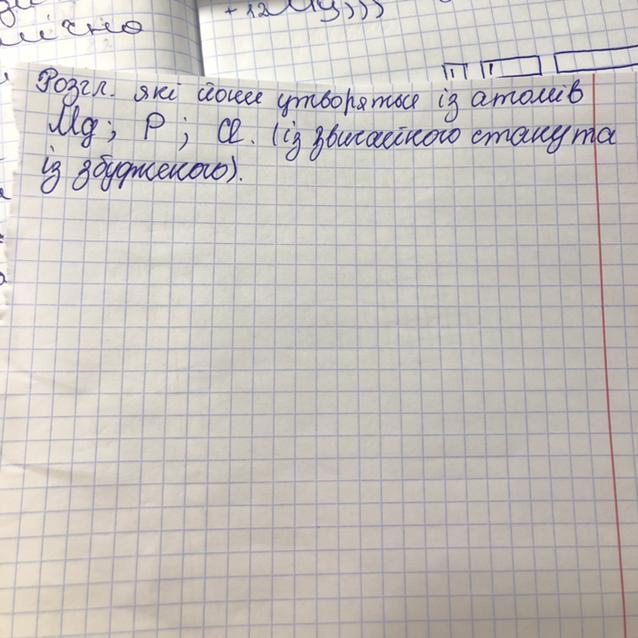 лічно
+12 Mg))))
Розгл. які йони утворяться із атомів
Mg; P; Cl. (із звичайного стану та
із збудженого).